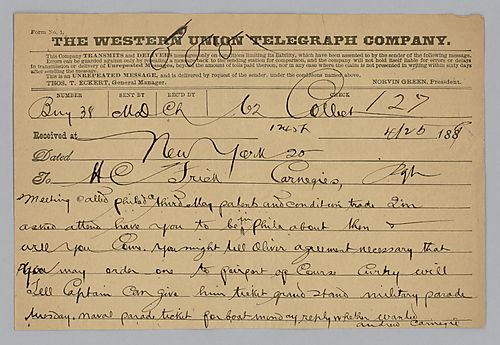 Form No. 1.
THE WESTERN UNION TELEGRAPH COMPANY.
This Company TRANSMITS and DELIVERS messages only on conditions limiting its liability, which have been assented to by the sender of the following message.
Errors can be guarded against only by repeating a message back to the sending station for comparison, and the company will not hold itself liable for errors or delays
in transmission or delivery of Unrepeated Messages, beyond the amount of tolls paid thereon, nor in any case where the claim is not presented in writing within sixty days
after sending the message.
This is an UNREPEATED MESSAGE, and is delivered by request of the sender, under the conditions named above.
THOS. T. ECKERT, General Manager. NORVIN GREEN, President.
NUMBER SENT BY REC'D BY CHECK
MD Ch 62 Collect 127
Received at 4/25 188
Dated New York 25
To H C Frick Carnegies, Pgh
Meeting called philad Third May patent and condition trade I'm
asked attend have you to be in Phila about then &
will you Come. You might tell Oliver agreement necessary that
you may order one to pierpont of Course Curry will
Tell Captain Can give him ticket grand stand military parade
tuesday. naval parade ticket for boat monday, reply whether wanted
Andrew Carnegie